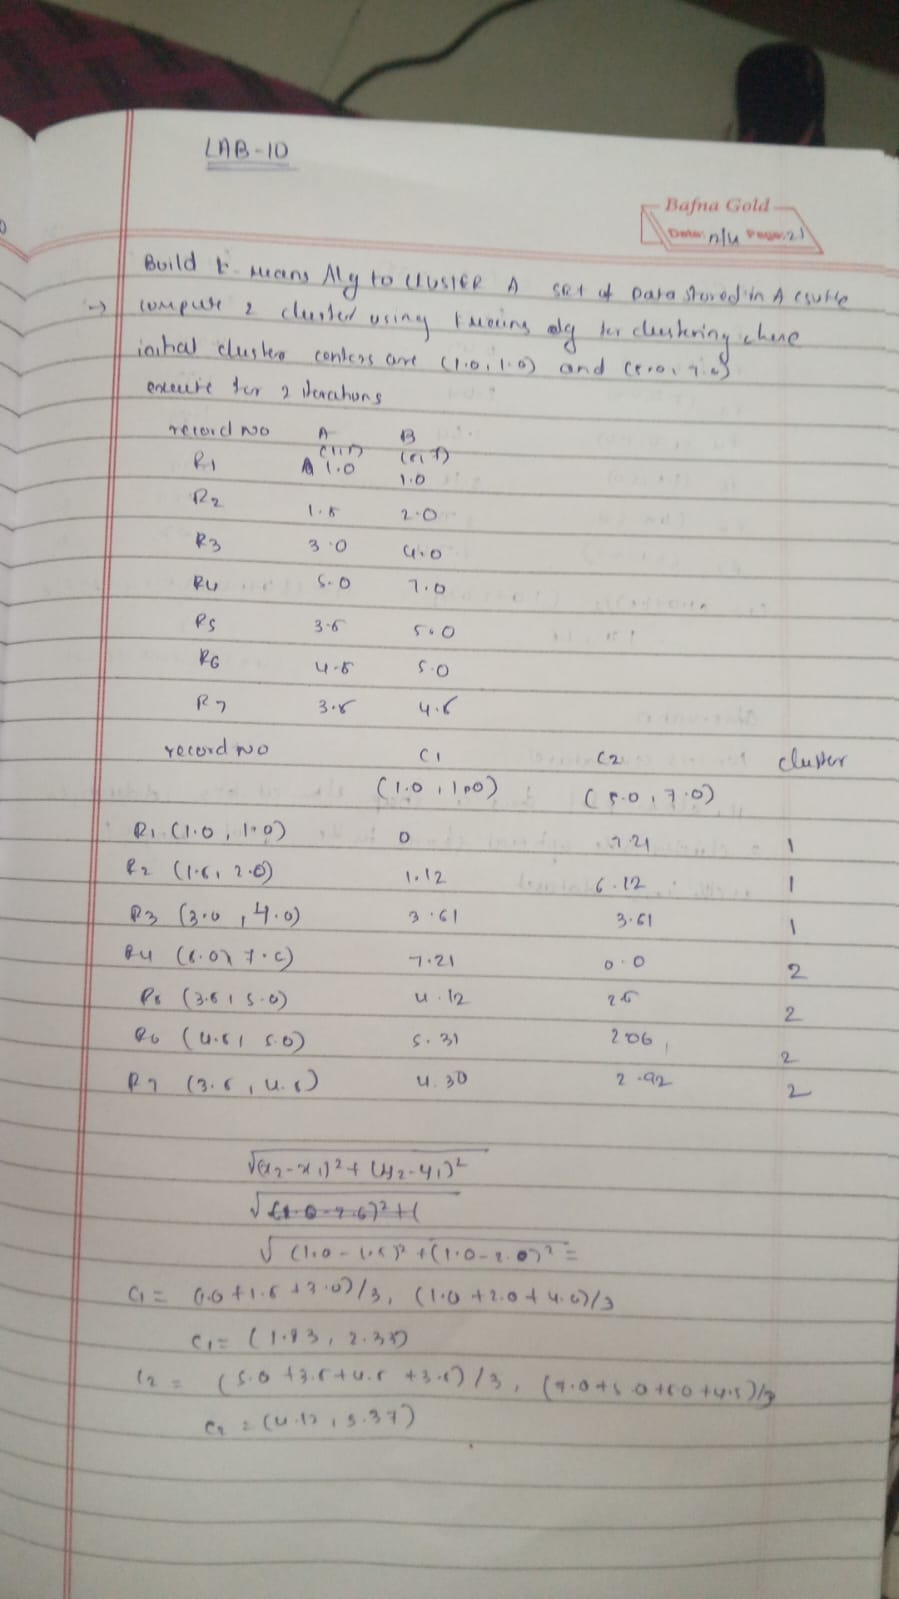 LAB-10
Bafna Gold
Date: Page: 21
Build k means Alg to cluster A set of Data stored in A
→ compute 2 cluster using kmeans alg for clustering where
initial cluster centers are (1.0, 1.0) and (5.0, 7.0)
execute for 2 iterations
record NO A B
R1 1.0 1.0
R2 1.5 2.0
R3 3.0 4.0
R4 5.0 7.0
R5 3.5 5.0
R6 4.5 5.0
R7 3.5 4.5
record NO C1 C2 cluster
(1.0, 1.0) (5.0, 7.0)
R1 (1.0, 1.0) 0 7.21 1
R2 (1.5, 2.0) 1.12 6.12 1
R3 (3.0, 4.0) 3.61 3.61 1
R4 (5.0, 7.0) 7.21 0.0 2
R5 (3.5, 5.0) 4.12 2.5 2
R6 (4.5, 5.0) 5.31 2.06 2
R7 (3.5, 4.5) 4.30 2.92 2
√(x2-x1)² + (y2-y1)²
√(1.0 - 1.5)² + (1.0 - 2.0)² =
C1 = (1.0 + 1.5 + 3.0)/3, (1.0 + 2.0 + 4.0)/3
C1 = (1.83, 2.33)
C2 = (5.0 + 3.5 + 4.5 + 3.5)/3, (7.0 + 5.0 + 5.0 + 4.5)/3
C2 = (4.12, 5.37)